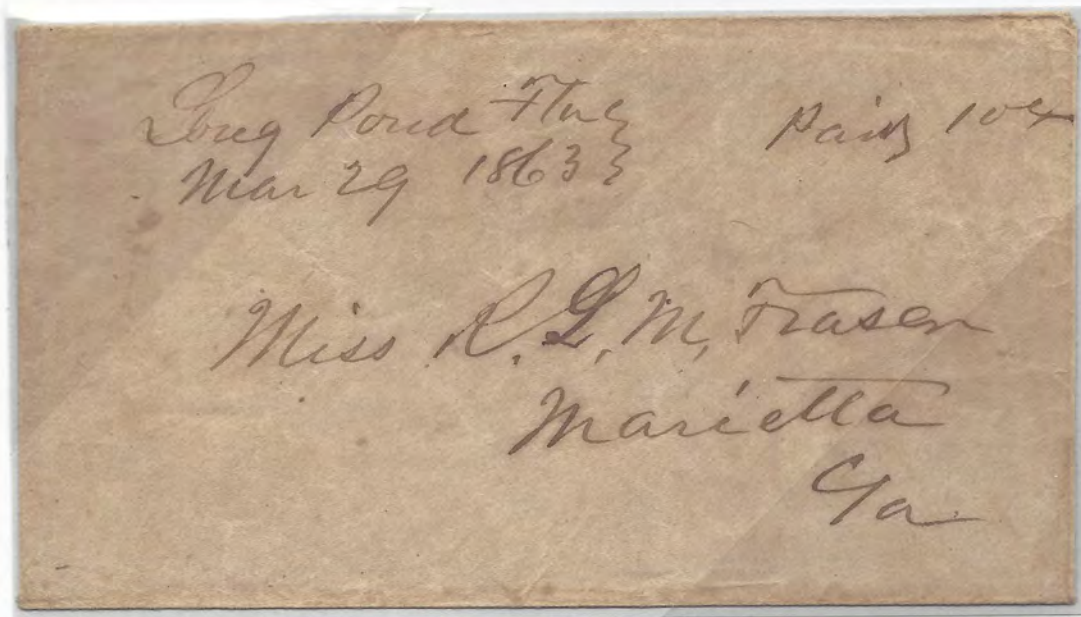 Long Pond Fla
Mar 29 1863
Paid 10
Miss R. L. M. Fraser
Marietta
Ga